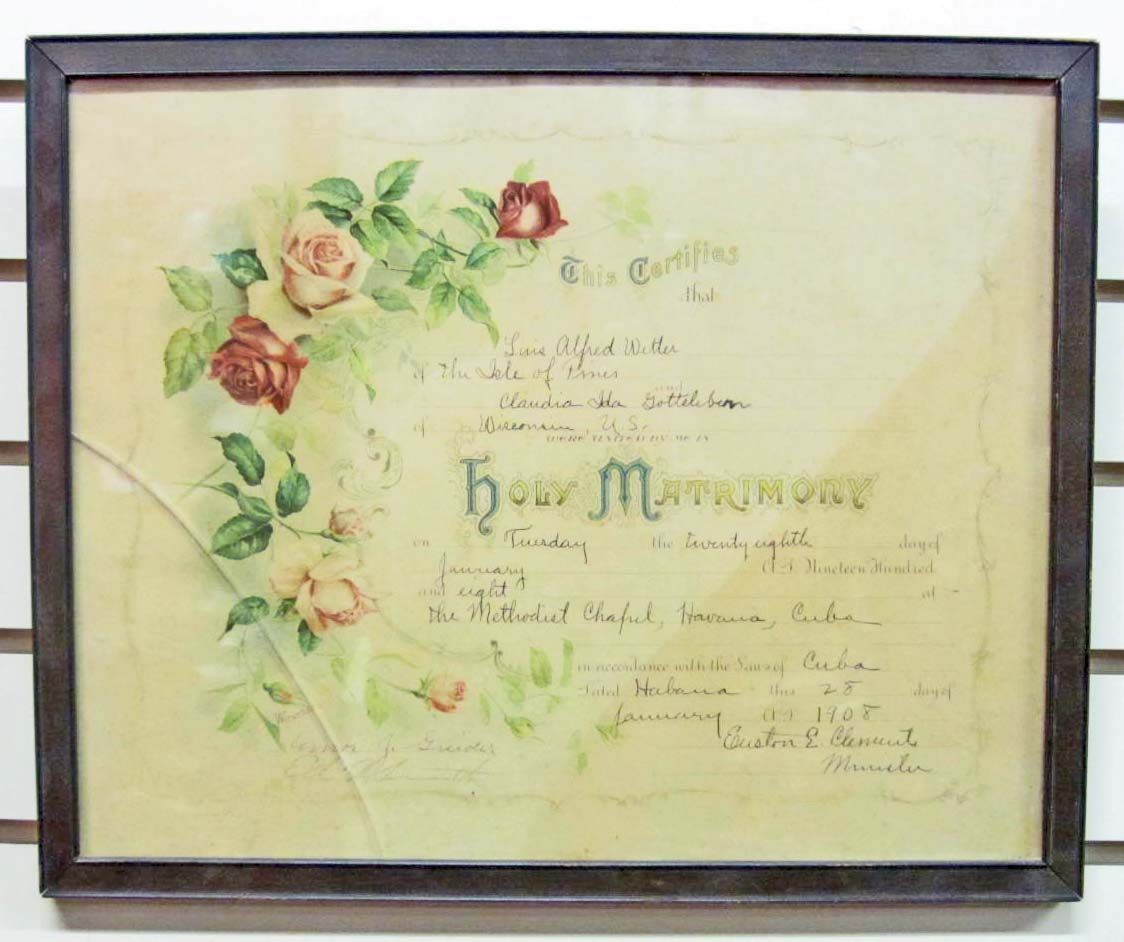 This Certifies
that
Luis Alfred Wetter
of The Isle of Pines
and
Claudia Ida Gottlebern
of Wisconsin, U.S.
were united by me in
Holy Matrimony
on Tuesday the twenty eighth day of
January A.D. Nineteen Hundred
and eight at
the Methodist Chapel, Havana, Cuba
in accordance with the Laws of Cuba
Dated Habana this 28 day of
January A.D. 1908
Euston E. Clements
Minister
J.